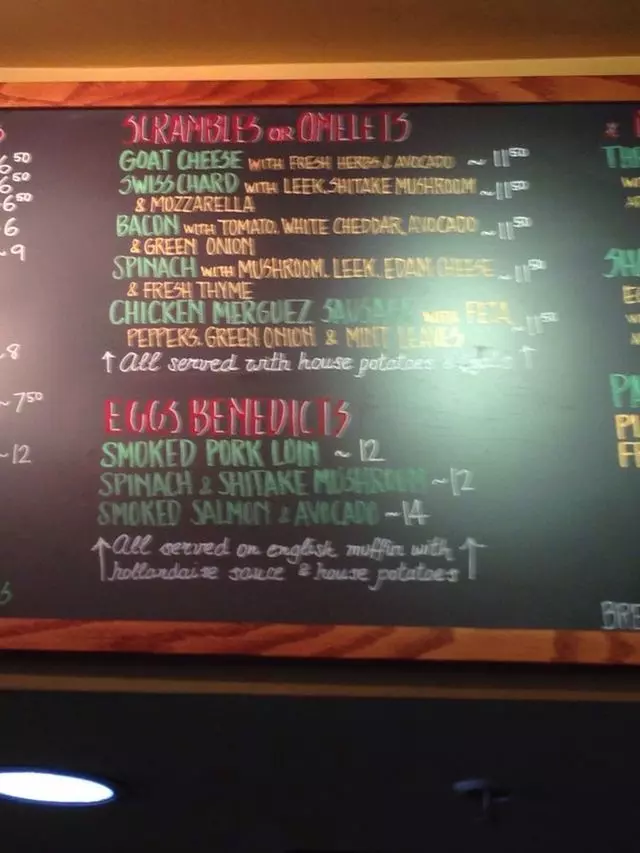 SCRAMBLES OR OMELETS
GOAT CHEESE WITH FRESH HERBS & AVOCADO ~ 11 50
SWISS CHARD WITH LEEK, SHITAKE MUSHROOM ~ 11 50
& MOZZARELLA
BACON WITH TOMATO, WHITE CHEDDAR, AVOCADO ~ 11 50
& GREEN ONION
SPINACH WITH MUSHROOM, LEEK, EDAM CHEESE ~ 11 50
& FRESH THYME
CHICKEN MERGUEZ SAUSAGE WITH FETA, ~ 11 50
PEPPERS, GREEN ONION & MINT LEAVES
↑ All served with house potatoes ↑
EGGS BENEDICTS
SMOKED PORK LOIN ~ 12
SPINACH & SHITAKE MUSHROOM ~ 12
SMOKED SALMON & AVOCADO ~ 14
↑ All served on english muffin with ↑
hollandaise sauce & house potatoes
6 50
6 50
6 50
6
9
8
~ 7 50
~ 12